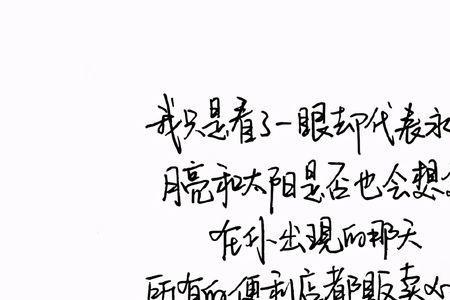 我只是看了一眼却代表永
月亮和太阳是否也会想
在你出现的那天
所有的便利店都贩卖心